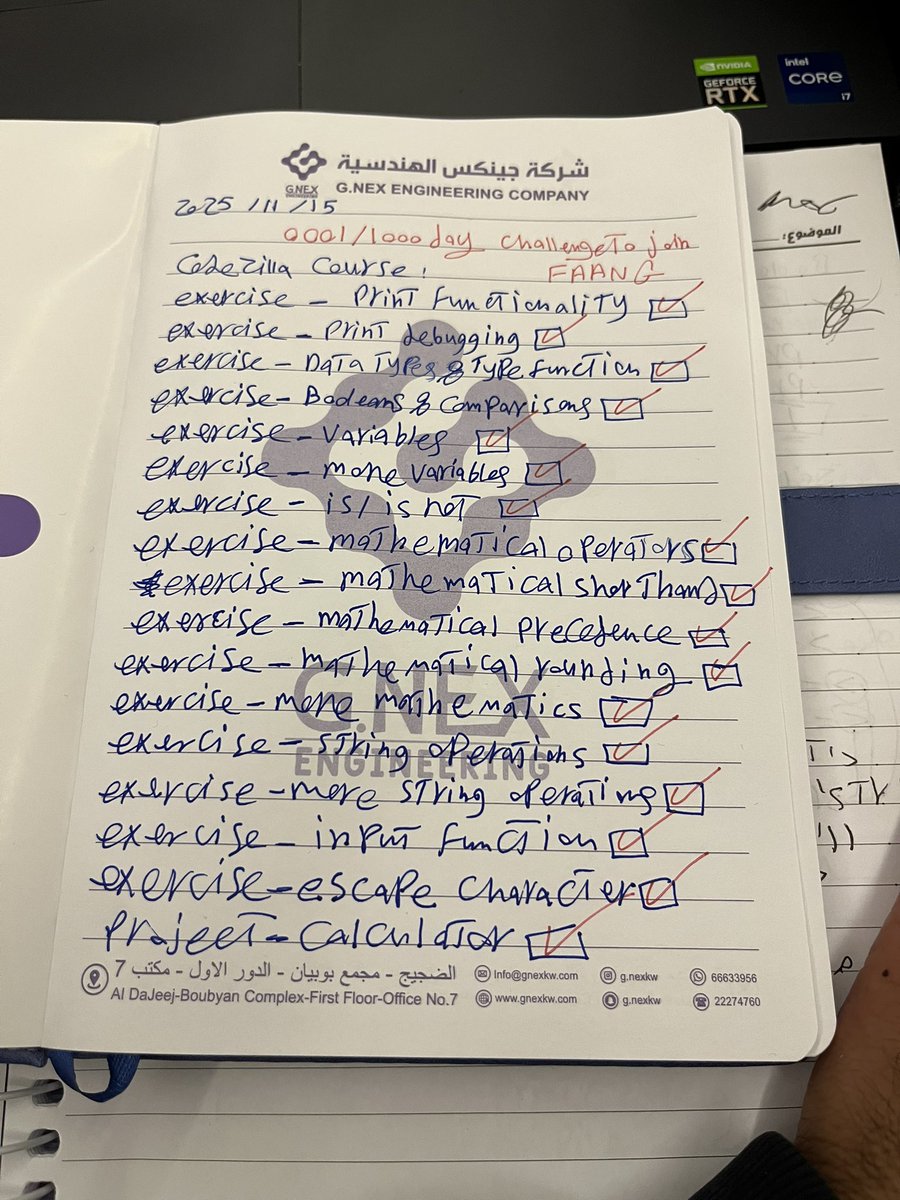 NVIDIA
GEFORCE
RTX
intel
CORE
i7
شركة جينكس الهندسية
G.NEX
ENGINEERING
G.NEX ENGINEERING COMPANY
2025/11/15
0001/1000 day challenge To join
FAANG
Codezilla Course:
exercise - Print functionality
exercise - Print debugging
exercise - Data Types & Type function
exercise - Booleans & Comparisons
exercise - Variables
exercise - more variables
exercise - is/is not
exercise - mathematical operators
exercise - mathematical shorthand
exercise - mathematical precedence
exercise - mathematical rounding
exercise - more mathematics
exercise - string operations
exercise - more string operating
exercise - input function
exercise - escape character
Project - Calculator
G.NEX
ENGINEERING
الضجيج - مجمع بوبيان - الدور الاول - مكتب 7
Al DaJeej-Boubyan Complex-First Floor-Office No.7
Info@gnexkw.com
g.nexkw
66633956
www.gnexkw.com
g.nexkw
22274760
الموضوع: